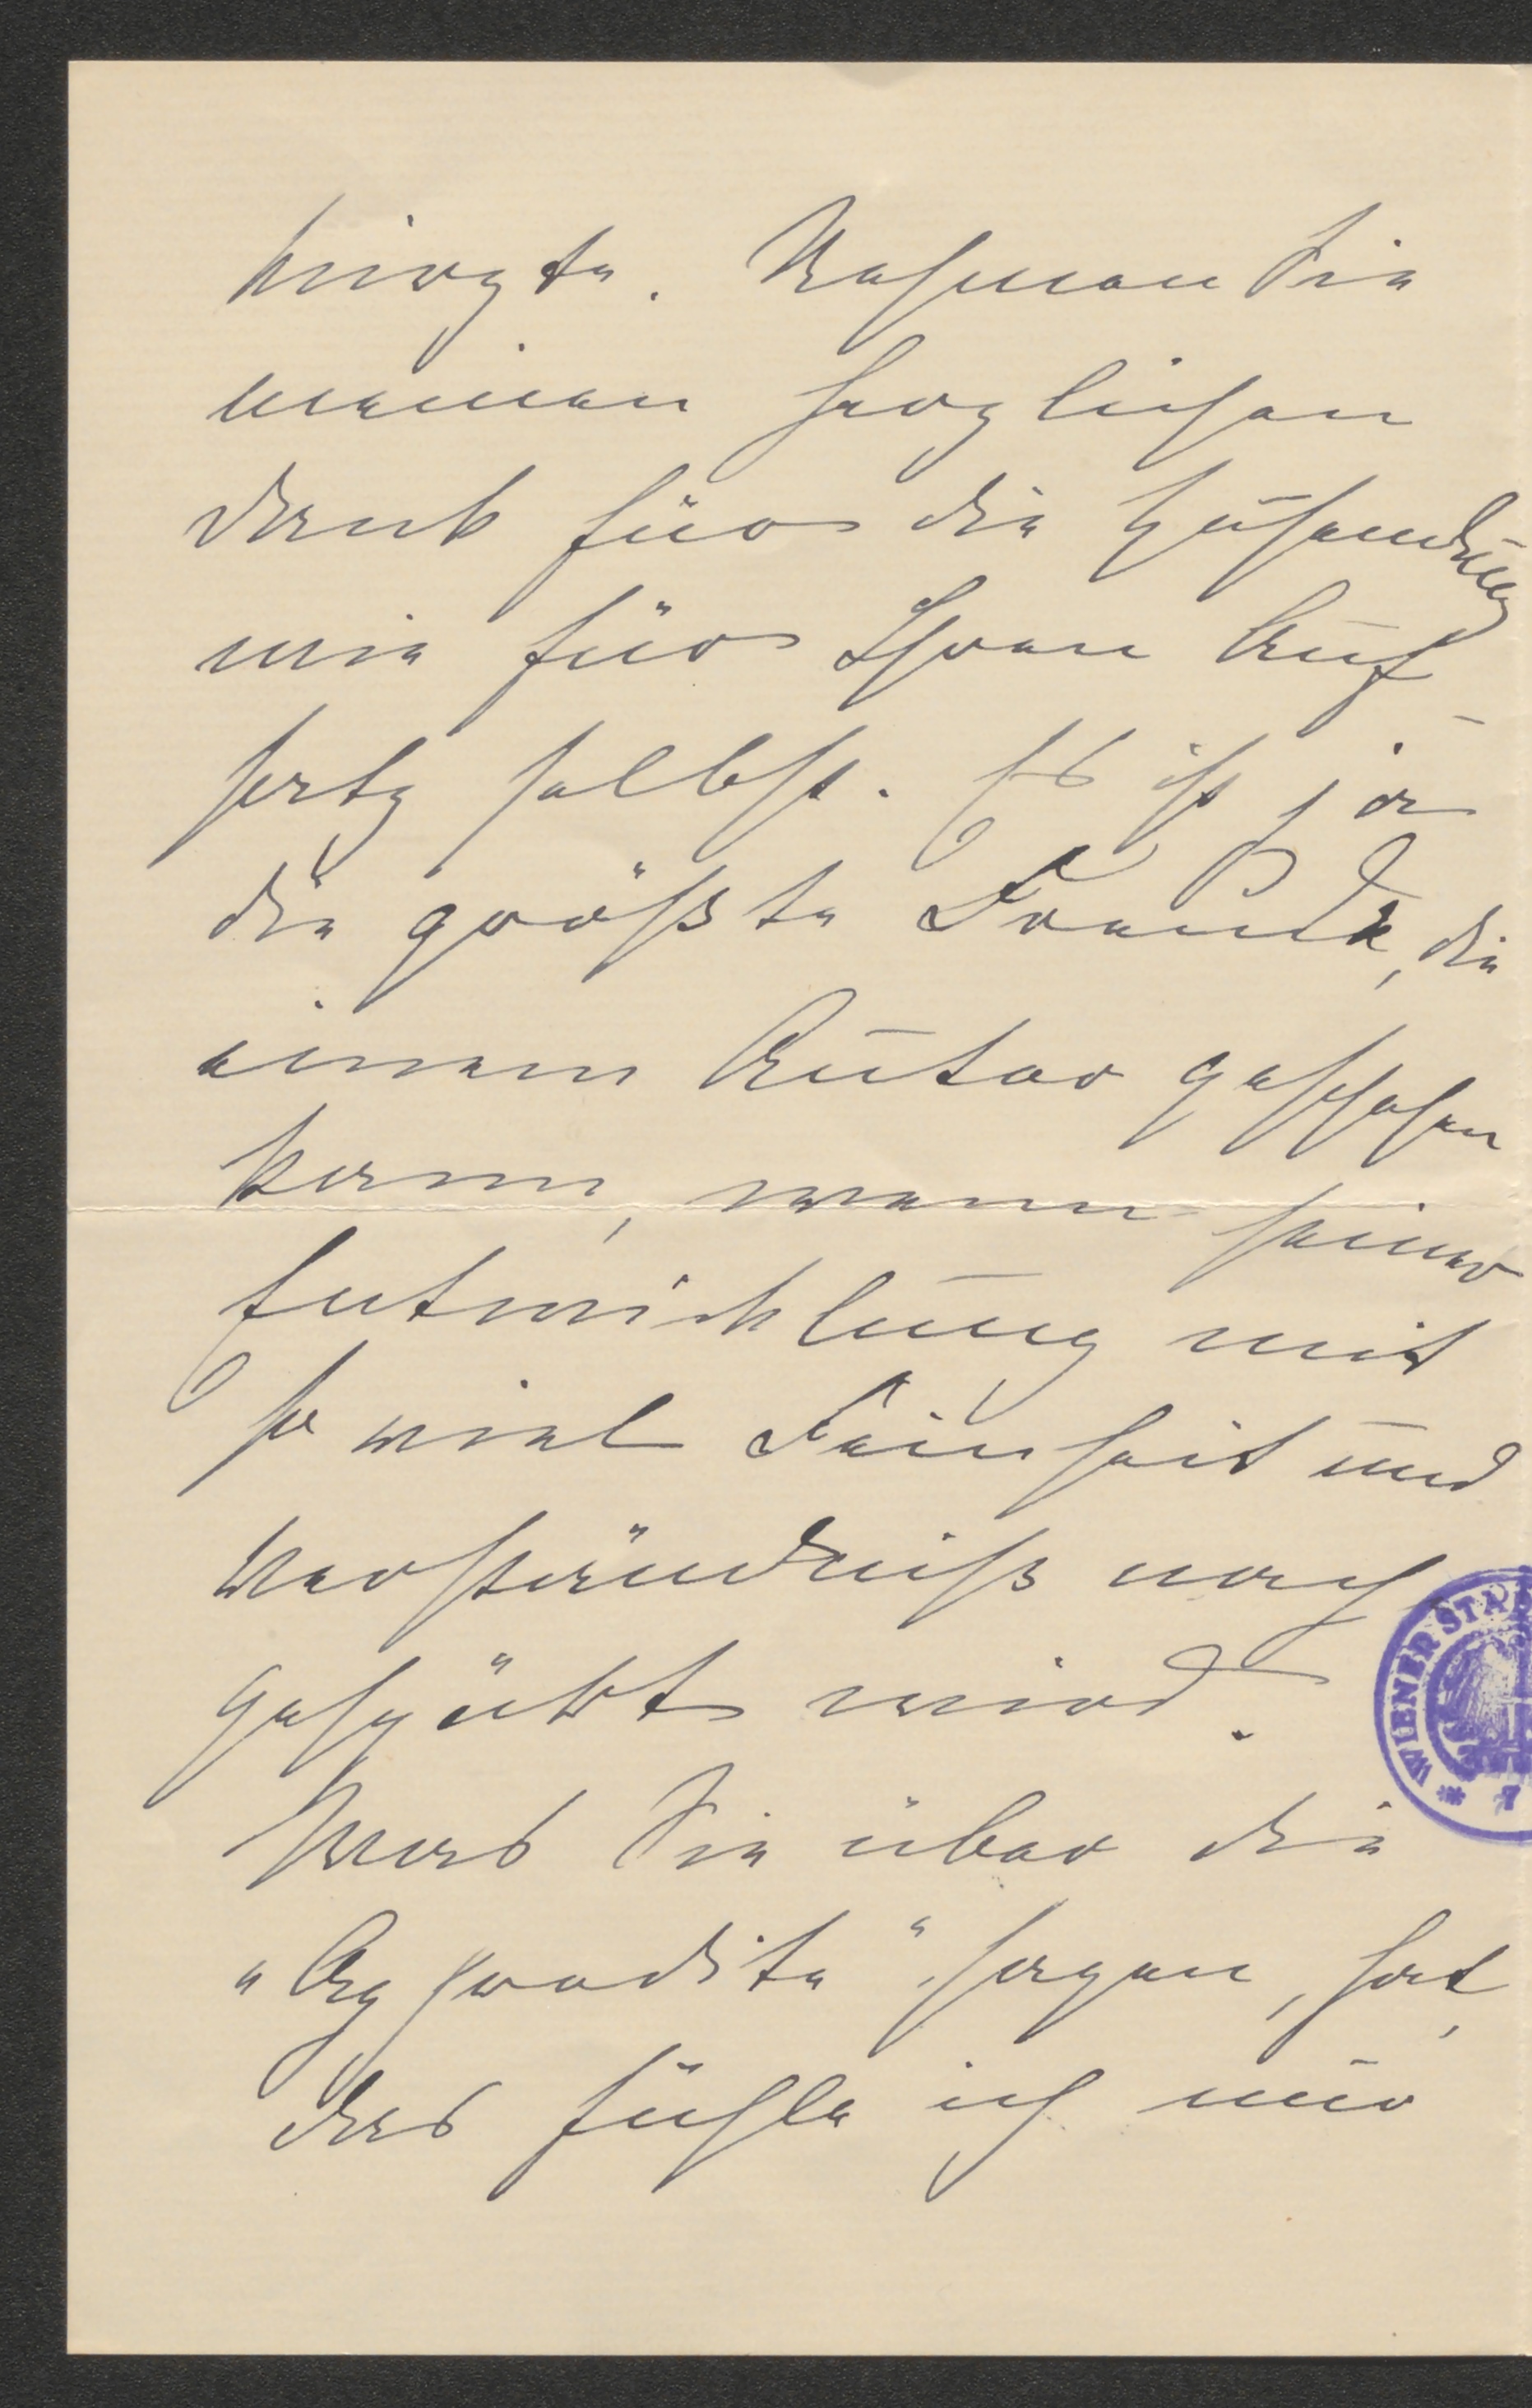 kürzte. Nehmen Sie
meinen herzlichen
Dank für die Zusendung
wie für Ihren Auf-
satz selbst. Es ist ja
die größte Freude, die
einem Autor geschehen
kann, wenn seiner
Entwicklung mit
so viel Feinheit und
Verständniß nach
gespürt wird.
Was Sie über die
„Aphrodite“ sagen, hat,
das fühle ich nur
WIENER STAD
7